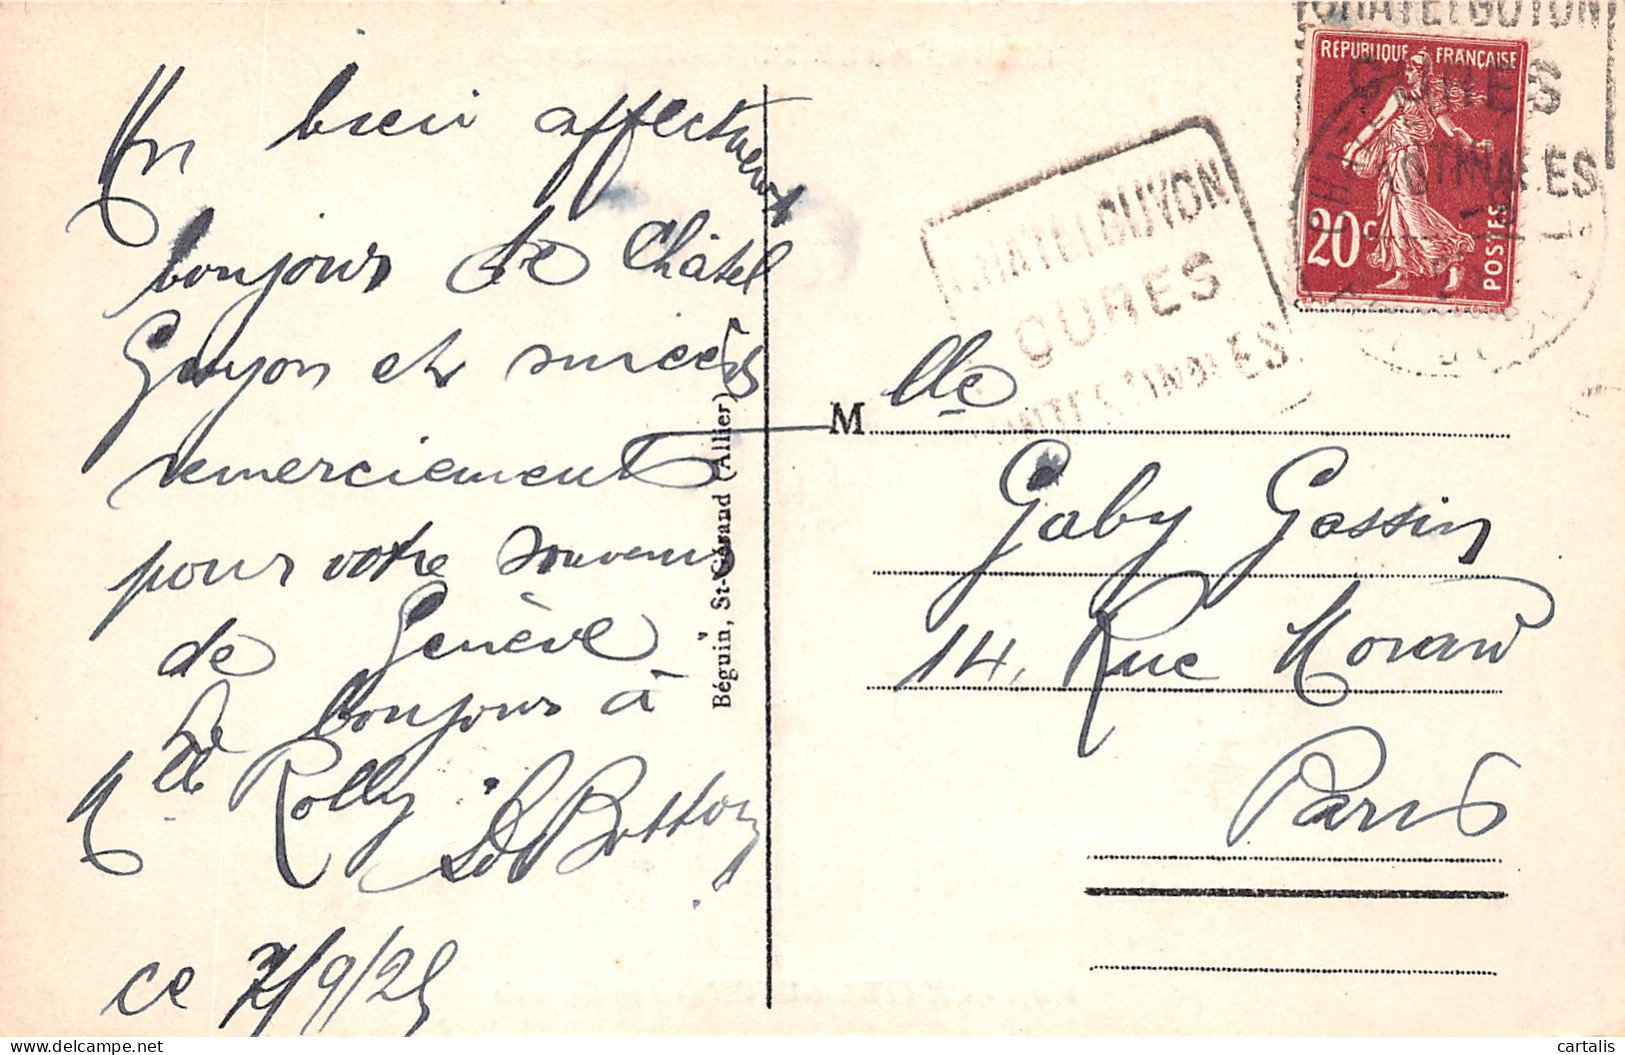 Un bien affectueux
bonjour de Châtel
Guyon et sincères
remerciements
pour votre souvenir
de Genève
Le bonjour à
Mlle Rolly
ce 7/9/25
Béguin, St-Gérand (Allier)
CHATELGUYON
CURES
INTESTINALES
CHATELGUYON
CURES
INTESTINALES
REPUBLIQUE FRANÇAISE
20c
POSTES
Mlle
Gaby Gassin
14, Rue Morand
Paris
cartalis
delcampe.net